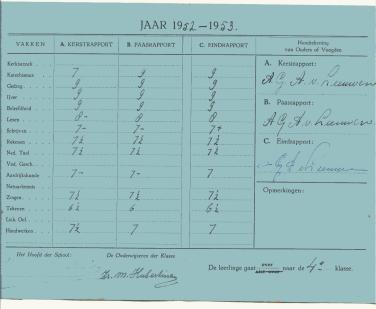 JAAR 1952—1953.
VAKKEN A. KERSTRAPPORT B. PAASRAPPORT C. EINDRAPPORT Handtekening van Ouders of Voogden
Kerkbezoek
Katechismus 7 9 9
Gedrag 9 9 9
IJver 9 9 9
Beleefdheid 9 9 9
Lezen 8- 8- 8
Schrijven 7- 7- 7+
Rekenen 7½ 7½ 7½
Ned. Taal 7½ 7½ 7½
Vad. Gesch.
Aardrijkskunde 7- 7- 7
Natuurkennis
Zingen 7½ 7½ 7½
Tekenen 6½ 6 6½
Lich. Oef.
Handwerken 7½ 7 7
A. Kerstrapport:
A. G. A. v. Leeuwen
B. Paasrapport:
A. G. A. v. Leeuwen
C. Eindrapport:
Opmerkingen:
Het Hoofd der School:
De Onderwijzeres der Klasse
De leerlinge gaat over naar de 4e klasse.